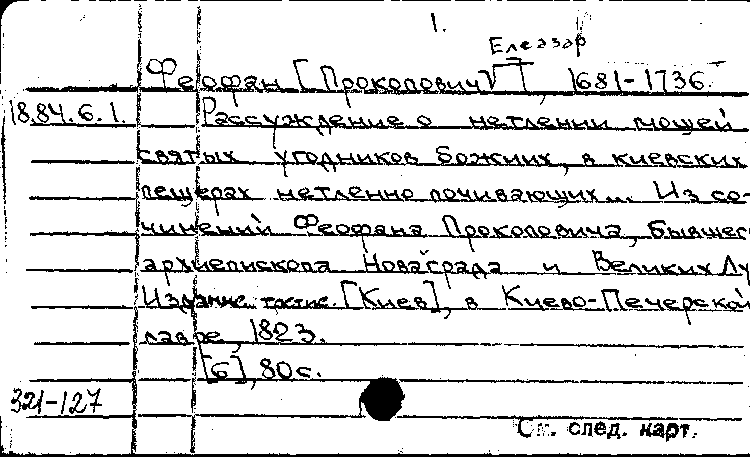 1.
Елеазар
Феофан [Прокопович], 1681-1736.
18.84.6.1. Рассуждение о нетлении мощей
святых угодников божиих, в киевских
пещерах нетленно почивающих... Из со-
чинений Феофана Прокоповича, бывшег
архиепископа Новаграда и Великих Лу
Издание третие. [Киев], в Киево-Печерской
лавре, 1823.
[6], 80 с.
321-127
См. след. карт.